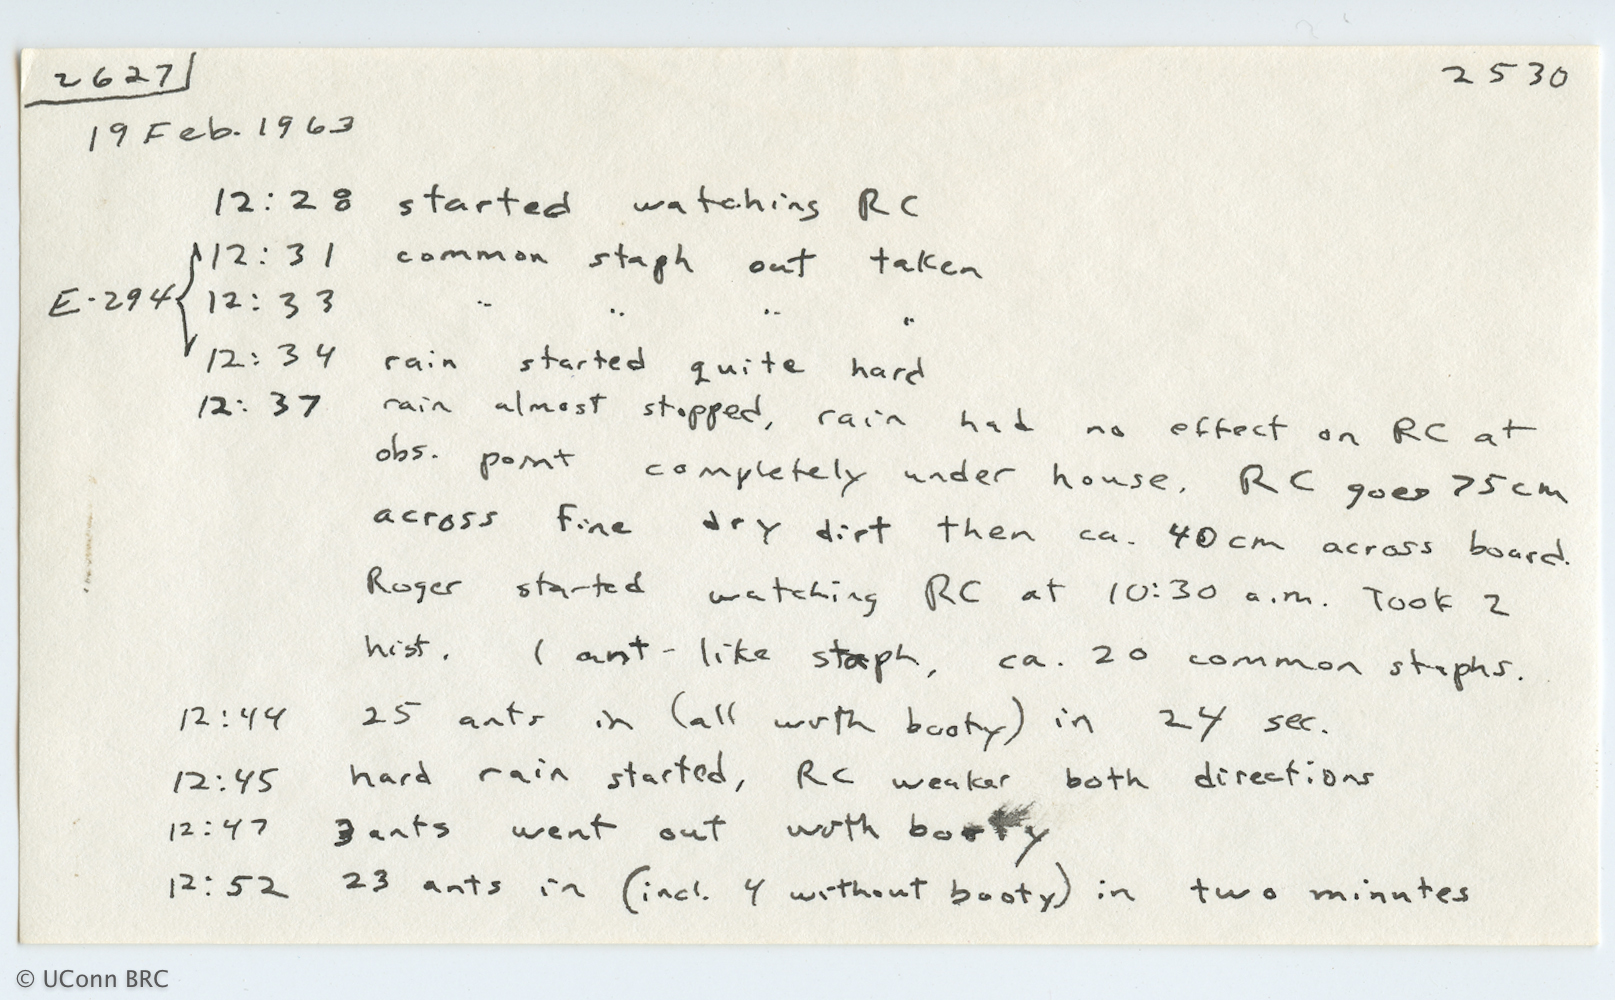 2627 2530
19 Feb. 1963
12:28 started watching RC
12:31 common staph out taken
E-294 12:33 " " " "
12:34 rain started quite hard
12:37 rain almost stopped, rain had no effect on RC at
obs. point completely under house. RC goes 75cm
across fine dry dirt then ca. 40cm across board.
Roger started watching RC at 10:30 a.m. Took 2
hist. 1 ant-like staph, ca. 20 common staphs.
12:44 25 ants in (all with booty) in 24 sec.
12:45 hard rain started, RC weaker both directions
12:47 3 ants went out with booty
12:52 23 ants in (incl. 4 without booty) in two minutes
© UConn BRC